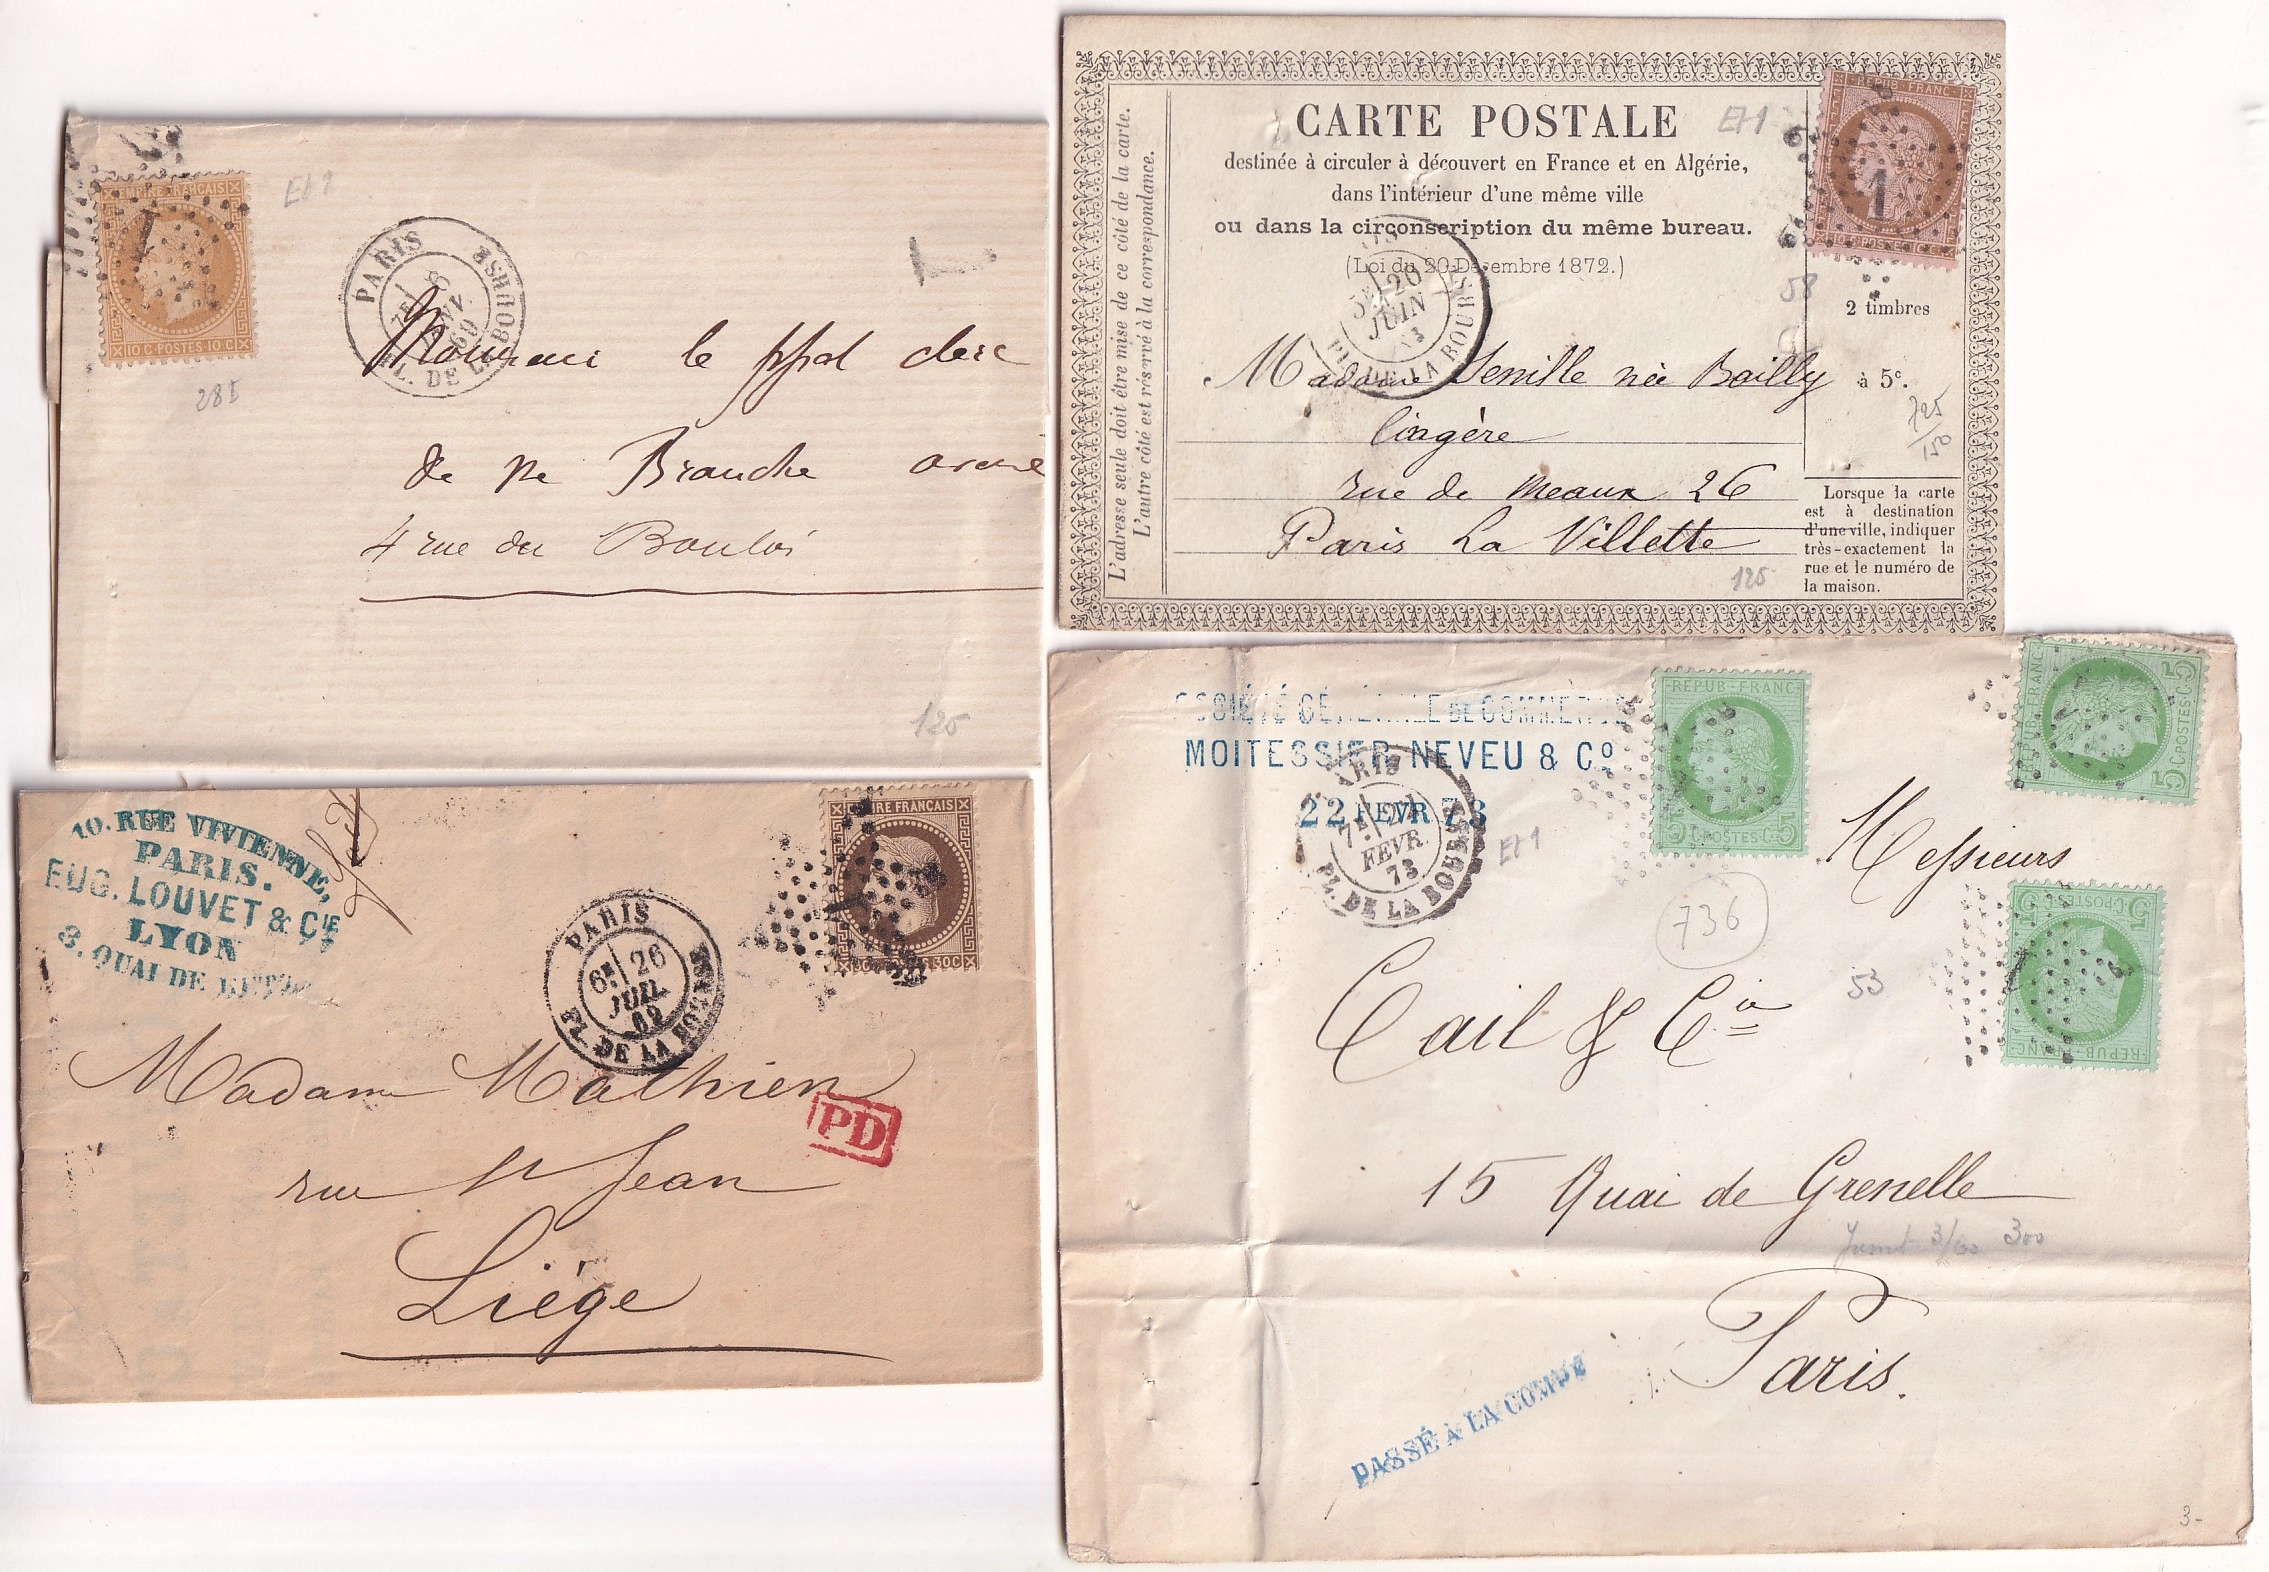 EMPIRE FRANÇAIS
10 C · POSTES · 10 C
1
Et 1
28I
PARIS
7E 8
JANV
69
PL. DE LA BOURSE
Monsieur le ppal clerc
de Me Branche avoué
4 rue du Bouloi
125
CARTE POSTALE
Et 1
destinée à circuler à découvert en France et en Algérie,
dans l'intérieur d'une même ville
ou dans la circonscription du même bureau.
(Loi du 20 Décembre 1872.)
L'adresse seule doit être mise de ce côté de la carte.
L'autre côté est réservé à la correspondance.
REPUB · FRANC
10 C POSTES 10 C
1
58
2 timbres
à 5c.
725
150
5E 20
JUIN
73
PL. DE LA BOURSE
Madame Senille née Bailly
lingère
rue de Meaux 26
Paris La Villette
125
Lorsque la carte
est à destination
d'une ville, indiquer
très-exactement la
rue et le numéro de
la maison.
10. RUE VIVIENNE,
PARIS.
EUG. LOUVET & CIE
LYON
8. QUAI DE
EMPIRE FRANÇAIS
30C
PARIS
6E 26
JUIL.
69
PL. DE LA BOURSE
Madame Mathieu
PD
rue St Jean
Liége
SOCIÉTÉ GÉNÉRALE DE COMMERCE
MOITESSIER NEVEU & Co
22 FEVR 73
PARIS
7E 21
FEVR.
73
PL. DE LA BOURSE
Et 1
REPUB · FRANC
5 C · POSTES · C 5
REPUB · FRANC
5 C · POSTES · C 5
REPUB · FRANC
5 C · POSTES · C 5
1
Messieurs
736
53
Cail & Cie
15 Quai de Grenelle
3/60 300
Paris.
PASSÉ À LA COMPE
3-